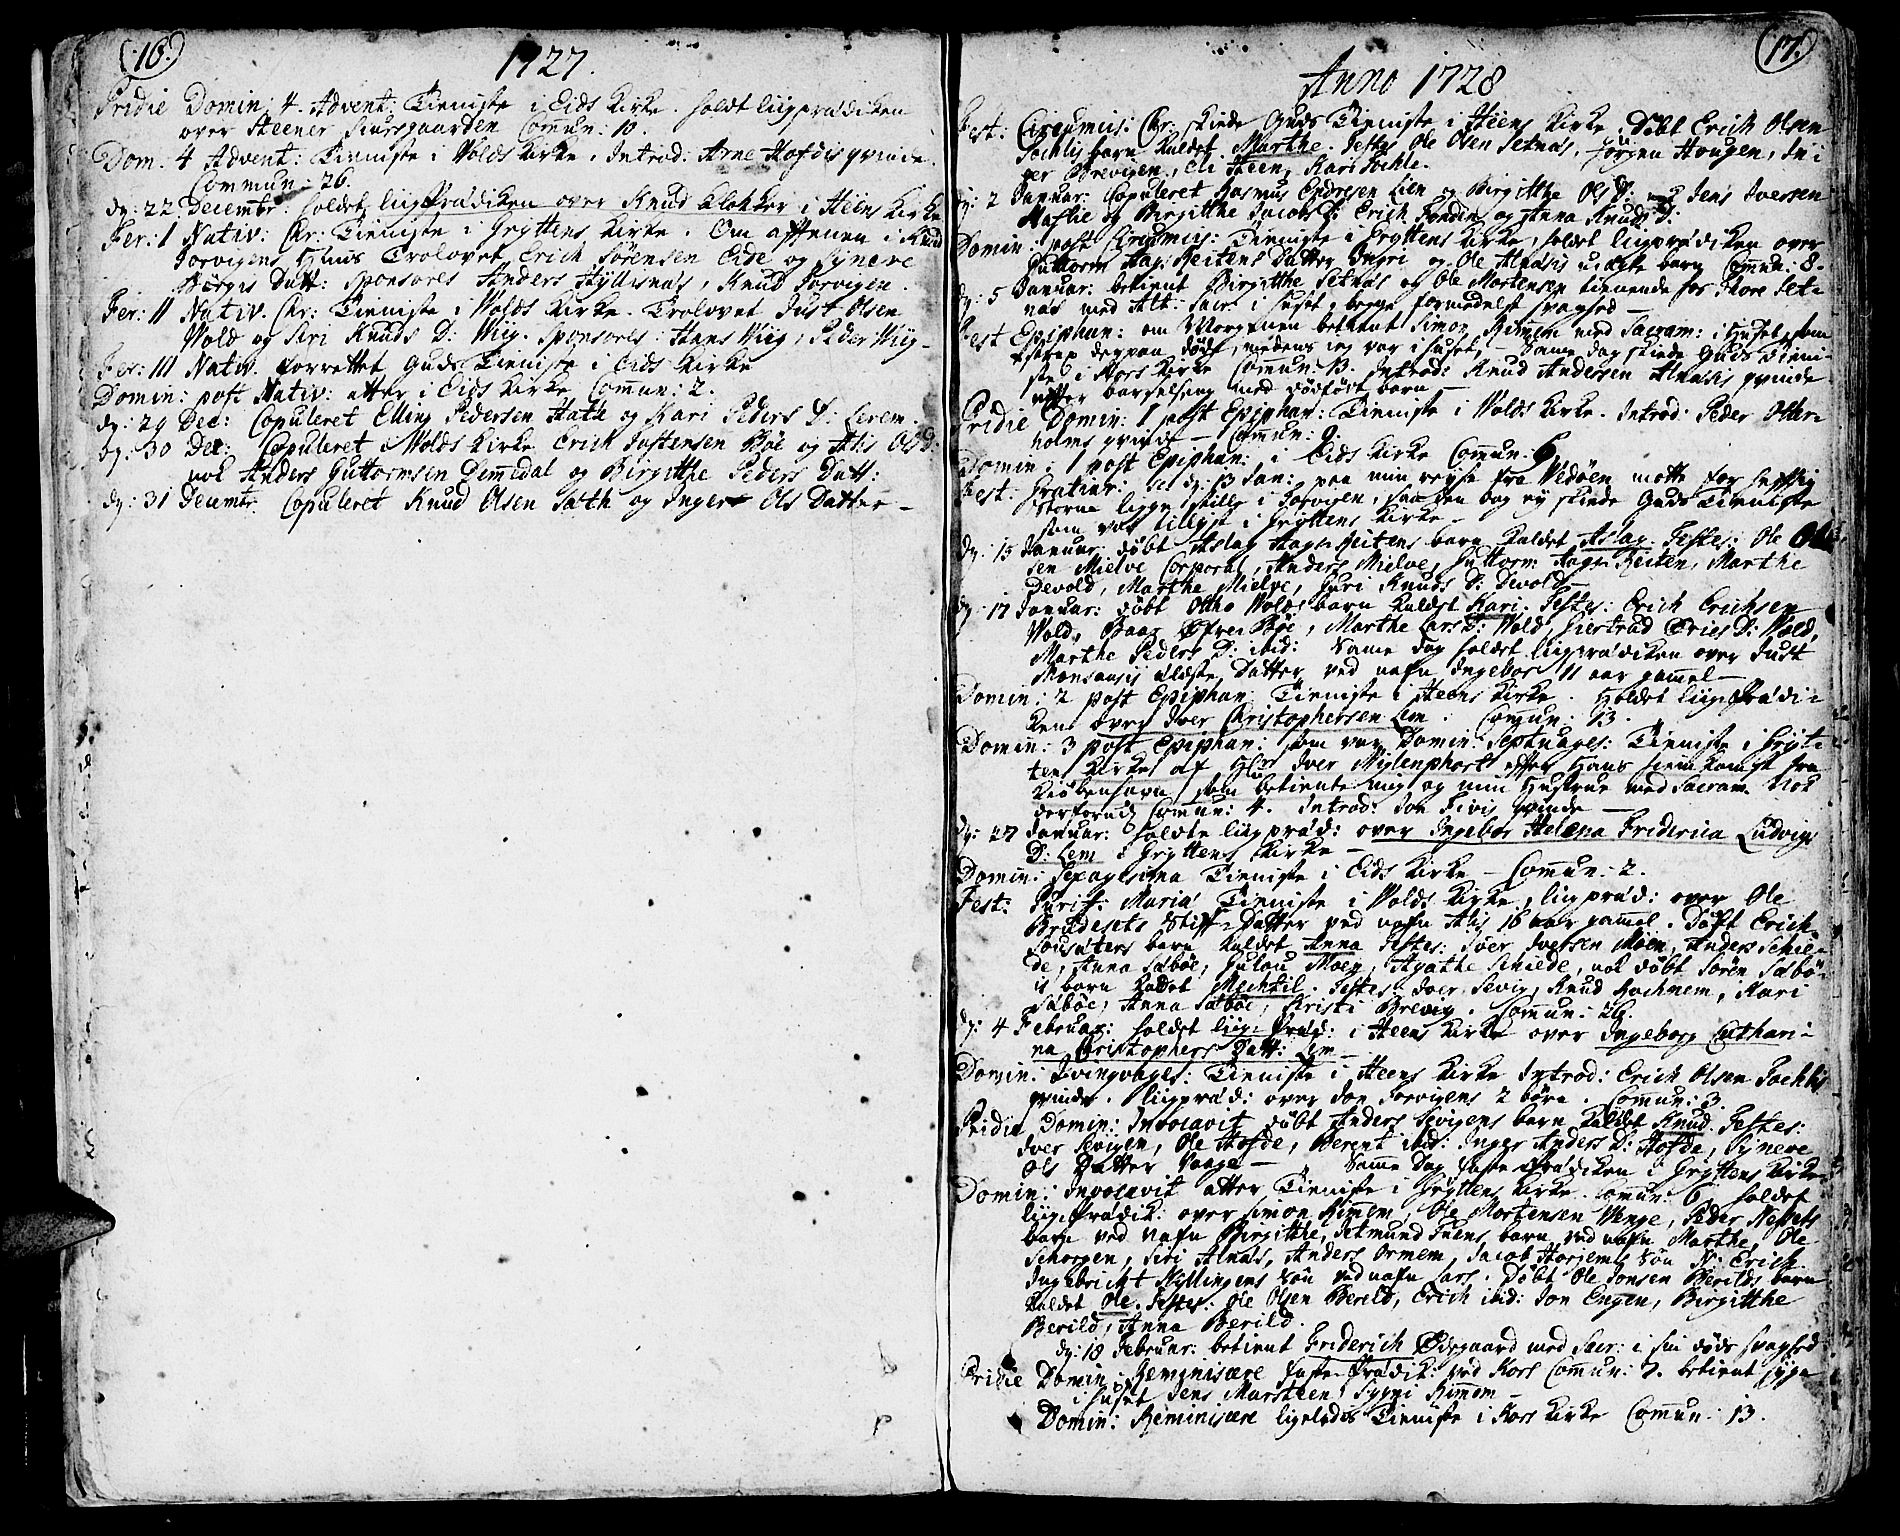 (16.)
1727.
Pridie Domin: 4. Advent: Tieniste i Eids Kirke. holdt liigprædiken
over Steener Siursgaarden Com̄un: 10.
Dom. 4 Advent: Tieniste i Volds Kirke. Introd: Arne Hofdis qvinde.
Commun: 26.
dy: 22 Decembr. holdet liigPrædiken over Knud Klokker i Heens Kirke
Fer: I Nativ: Chr: Tieniste i Gryttens Kirke. Om afftenen i Knud
Torvigens Huus Trolovet Erich Sørensen Eide og Syneve
Datt: Sponsores Anders Hyllisnæs, Knud Torvigen.
Fer: II Nativ. Chr: Tieniste i Volds Kirke. Trolovet Just Olsen
Vold og Siri Knuds D: Wiig. Sponsores: Hans Wiig, Peder Wiig –
Fer: III Nativ. forrettet Guds Tieniste i Eids Kirke
Domin: post Nativ: atter i Eids Kirke Com̄un: 2.
dy: 29 Dec: Copuleret Elling Pedersen Hatle og Kari Peders D: Lerem
dy: 30 Dec: Copuleret i Volds Kirke Erich Jostensen Bøe og Alis Ols D:
nok Anders Guttormsen Dem̄edal og Birgitthe Peders Datt:
dy: 31 Decembr. Copuleret Knud Olsen Sæth og Inger Ols Datter –
(17.)
Anno 1728
Fest: Circumcis: Chr. skiede Guds Tieniste i Heens Kirke. Døbt Erich Olsen
Sochlis barn kaldet Marthe. Testes Ole Olsen Setnæs, Jørgen Hougen, Jn i
Brevigen, Eli Heen, Kari Sochle.
dy: 2 Januar: Copuleret Rasmus Endresen Lien og Birgitthe Ols D: Jens Iversen
og Birgitthe Jacobs D: Erich og Anna Knuds D:
Domin: post Circumcis: Tieniste i Gryttens Kirke, holdet liigprædiken over
Guttorm Hag: Reitens Datter Ingri og Ole Alnæsis uægte barn Com̄un: 8.
dy: 5 Januar: betient Birgitthe Setnæs og Ole Mortensen tienende hos Thore Set-
næs med Alt: Sacr. i huset, begge formedelst svaghed –
Fest Epiphan: om Morgenen betient Simon Rimem med Sacram: i huset, som
strax derpaa døde, medens ieg var i huset. – Samme dag skiede Guds Tieni-
ste i Kors Kirke Com̄un: 13. Introd: Knud Andersen Alnæsis qvinde
efter barselseng med dødfødt barn –
Pridie Domin: 1 post Epiphan: Tieniste i Volds Kirke. Introd: Peder Otter-
holms qvinde – Com̄un: 9.
Domin: 1 post Epiphan: i Eids Kirke Com̄un: 6
Fest: dy: 13 Jan: paa min reyse fra Vedøen motte for hefftig
storm ligge stille i Torvigen, saa den dag ey skiede Guds Tieniste
som var tillyst i Gryttens Kirke –
dy: 15 Januar: døbt Aslag Hag: Reitens barn kaldet Aslag. Testes: Ole Ol-
sen Mielve Corporal, Anders Mielve, Guttorm Hag: Reiten, Marthe
Devold, Marthe Mielve, Guri Knuds D: Devold –
dy: 17 Januar: døbt Ottho Volds barn kaldet Kari. Testes: Erich Erichsen
Vold, Baar Øfre Bøe, Marthe Lars D: Vold, Giertrud Erics D: Vold,
Marthe Peders D: ibid: Samme dag holdet liigprædiken over Just
Monsansis eldste Datter ved nafn Ingebor 11 aar gam̄el –
Domin: 2 post Epiphan. Tieniste i Heens Kirke. Holdet liigPrædi-
ken over Iver Christophersen Lem. Com̄un: 13.
Domin: 3 post Epiphan: som var Domin: Septuages: Tieniste i Gryt-
tens Kirke af Hlr Iver Nylenphort efter Hans hiemkomst fra
Kiøbenhavn, som betiente mig og min Hustrue med Sacram. Nok
derforuden Com̄un: 4. Introd: Jon Fivis qvinde –
dy: 27 Januar: holdte liigpræd: over Ingebor Helena Friderica Ludvigs
D: Lem i Gryttens Kirke –
Domin: Sexagesima Tieniste i Eids Kirke – Com̄un: 2.
Fest: Purif: Mariæ Tieniste i Volds Kirke, liigpræd: over Ole
Brudesets Stiff-Datter ved nafn Alis 16 aar gam̄el. Døbt Erich
barn kaldet Anna Testes: Iversen Moen, Anders Schie-
de, Anna Sæbøe, Moen, Agathe Schiede, nok døbt Søren Sæbø-
is barn kaldet Mechtil. Testes: Iver Sevig, Knud Hochnem, Kari
Sæbøe, Anna Sæbøe, Kristi Brevig. Com̄un: 26.
dy: 4 Februar: holdet liig-Præd: i Heens Kirke over Ingeborg Cathari-
na Christophers Datt: Lem –
Domin: Qvinqvages: Tieniste i Heens Kirke Introd: Erich Olsen Sochlis
qvinde. liigpræd: over Jon Torvigens 2 børn. Com̄un: 3
Pridie Domin: Invocavit døbt Anders Sevigens barn kaldet Knud. Testes:
Iver Sevigen, Ole Hofde, Berent ibid: Inger Anders D: Hofde, Syneve
Ols Datter Vaage – Samme Dag faste Prædiken i Gryttens Kirke
Domin: Invocavit atter Tieniste i Gryttens Kirke. Com̄un: 6. holdet
liig-Prædik: over Simon Rimem, Ole Mortensen Venge, Peder Nessets
barn ved nafn Birgitthe, Setmund barn ved nafn Marthe, Ole
Schorgen, Siri Alnæs, Anders Ormem, Jacob Horjems Søn N: Erich
Ingebricht Nyllingens Søn ved nafn Lars. Døbt Ole Jonsen Berilds barn
kaldet Ole. Testes: Ole Olsen Berild, Erich ibid: Jon Engen, Birgitthe
Berild, Anna Berild.
dy: 18 Februar: betient Friderich Ødegaard med Sacr: i sin døds svaghed.
Pridie Domin: Reminiscere faste Prædik: ved Kors Com̄un: 7. betient syge
i huset Jens Marsteen, Sygni Rimem –
Domin: Reminiscere ligeledes Tieniste i Kors Kirke Com̄un: 13.